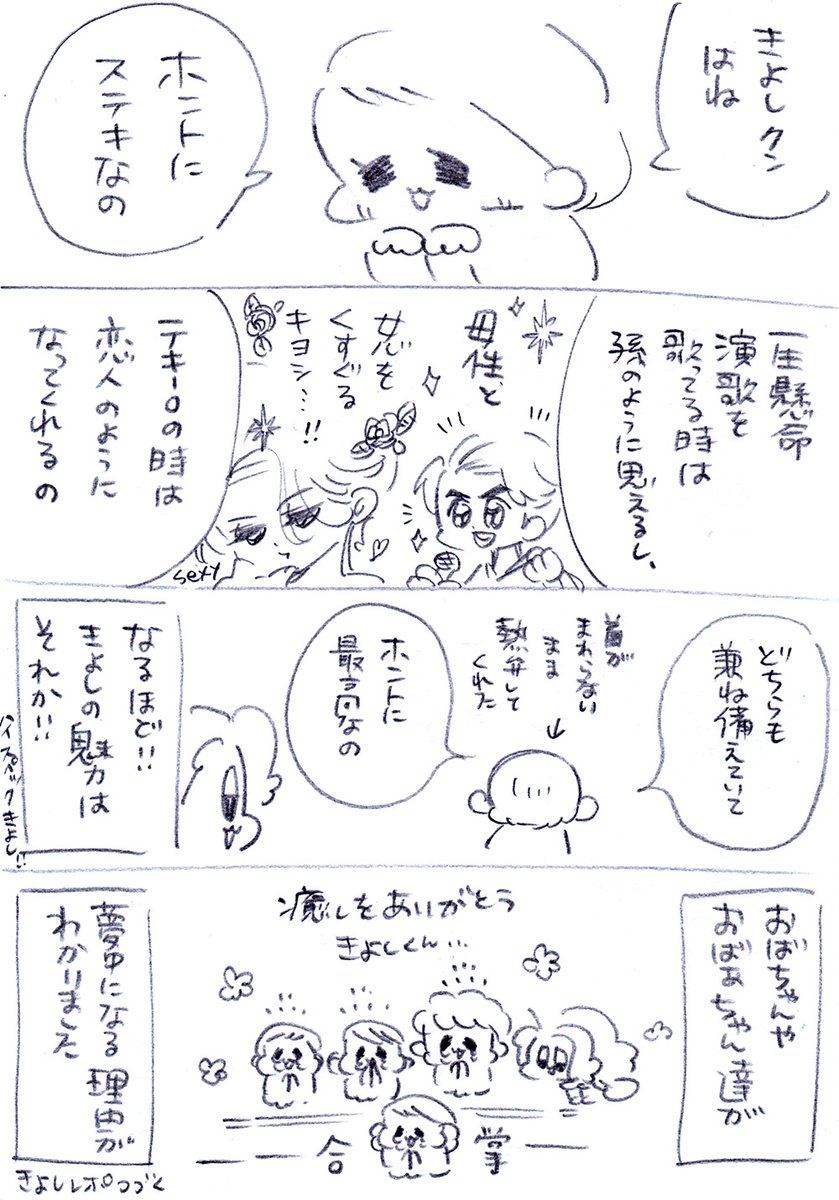 きよしクン
はね
ホントに
ステキなの
一生懸命
演歌を
歌ってる時は
孫のように思えるし、
母性と
女心を
くすぐる
キヨシ…!!
sexy
テキーロの時は
恋人のように
なってくれるの
どちらも
兼ね備えていて
首が
まわらない
まま
熱弁して
くれた
ホントに
最高なの
なるほど!!
きよしの魅力は
それか!!
ハイスペックきよし!!
おばちゃんや
おばあちゃん達が
癒しをありがとう
きよしくん…
合掌
夢中になる理由が
わかりました
きよしレポつづく